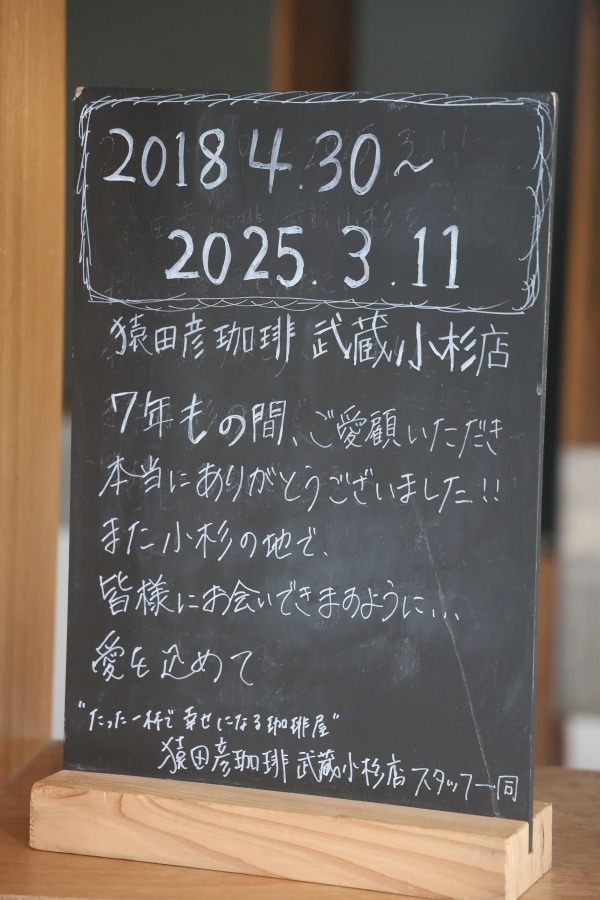 2018 4.30～
2025.3.11
猿田彦珈琲 武蔵小杉店
7年もの間、ご愛顧いただき
本当にありがとうございました!!
また小杉の地で、
皆様にお会いできますように...
愛を込めて
"たった一杯で幸せになる珈琲屋"
猿田彦珈琲 武蔵小杉店 スタッフ一同